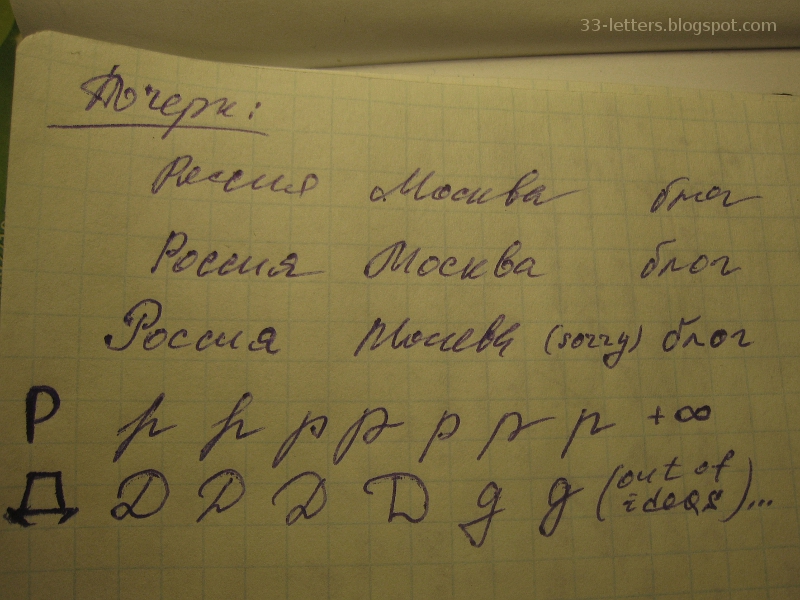 33-letters.blogspot.com
Почерк:
Россия Москва блог
Россия Москва блог
Россия Москва (sorry) блог
Р р р р р р р р +∞
Д Д Д Д Д д д (out of ideas)...